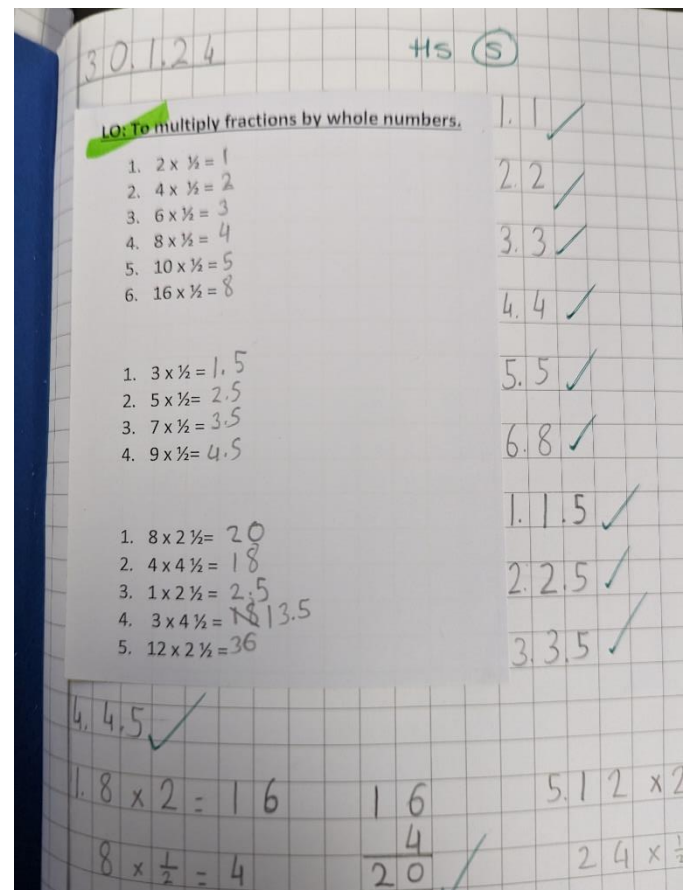 30.1.24
HS S
LO: To multiply fractions by whole numbers.
1. 2 x ½ = 1
2. 4 x ½ = 2
3. 6 x ½ = 3
4. 8 x ½ = 4
5. 10 x ½ = 5
6. 16 x ½ = 8
1. 3 x ½ = 1.5
2. 5 x ½= 2.5
3. 7 x ½ = 3.5
4. 9 x ½= 4.5
1. 8 x 2 ½= 20
2. 4 x 4 ½ = 18
3. 1 x 2 ½ = 2.5
4. 3 x 4 ½ = 13.5
5. 12 x 2 ½ = 36
1. 1 ✓
2. 2 ✓
3. 3 ✓
4. 4 ✓
5. 5 ✓
6. 8 ✓
1. 1.5 ✓
2. 2.5 ✓
3. 3.5 ✓
4. 4.5 ✓
1. 8 x 2 = 16
8 x ½ = 4
16
4
20 ✓
5. 12 x 2
24 x ½